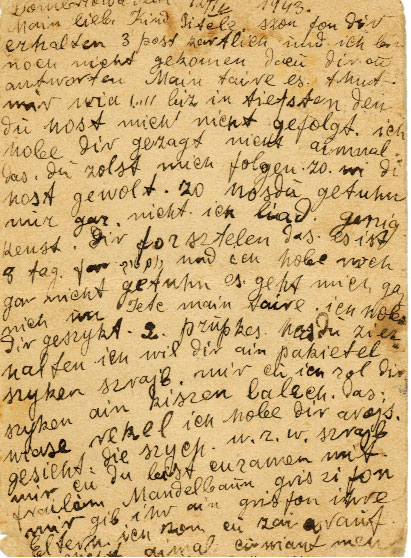 1943.
Main liebe Kind Ditele szon fon dir
erhalten 3 post kartlich und ich bin
noch nicht gekomen dacu dir cu
antworten Main taire es. thut
mir wid biz in tiefsten den
du host mich nicht gefolgt. ich
hobe dir gezagt nicht ainmal
das. du zolst mich folgen. zo. wi di
host gewolt. zo hozdu getuhn
mir gar. nicht. ich liad. genig
kenst. dir forsztelen das. es ist
8 tag. for und ich hobe noch
gar nicht getuhn es. geht mich ga
nich un Tete main taire ich hobe
dir geszykt. 2. przipkes. hasdu zi er
halten ich wil dir ain pakietel
szyken szrajb. mir cu ich zol dir
szyken ain kiszen balech. das.
wiase rekel ich hobe dir arojs.
gesicht. die szych. u. z. w. szrajb
mir cu du lest cuzamen mit
fraulein Mandelbaum gris zi fon
mir gib. ihr ain gris fon ihre
Eltern ich kom cu zan grauf
ainmal cuwiant men